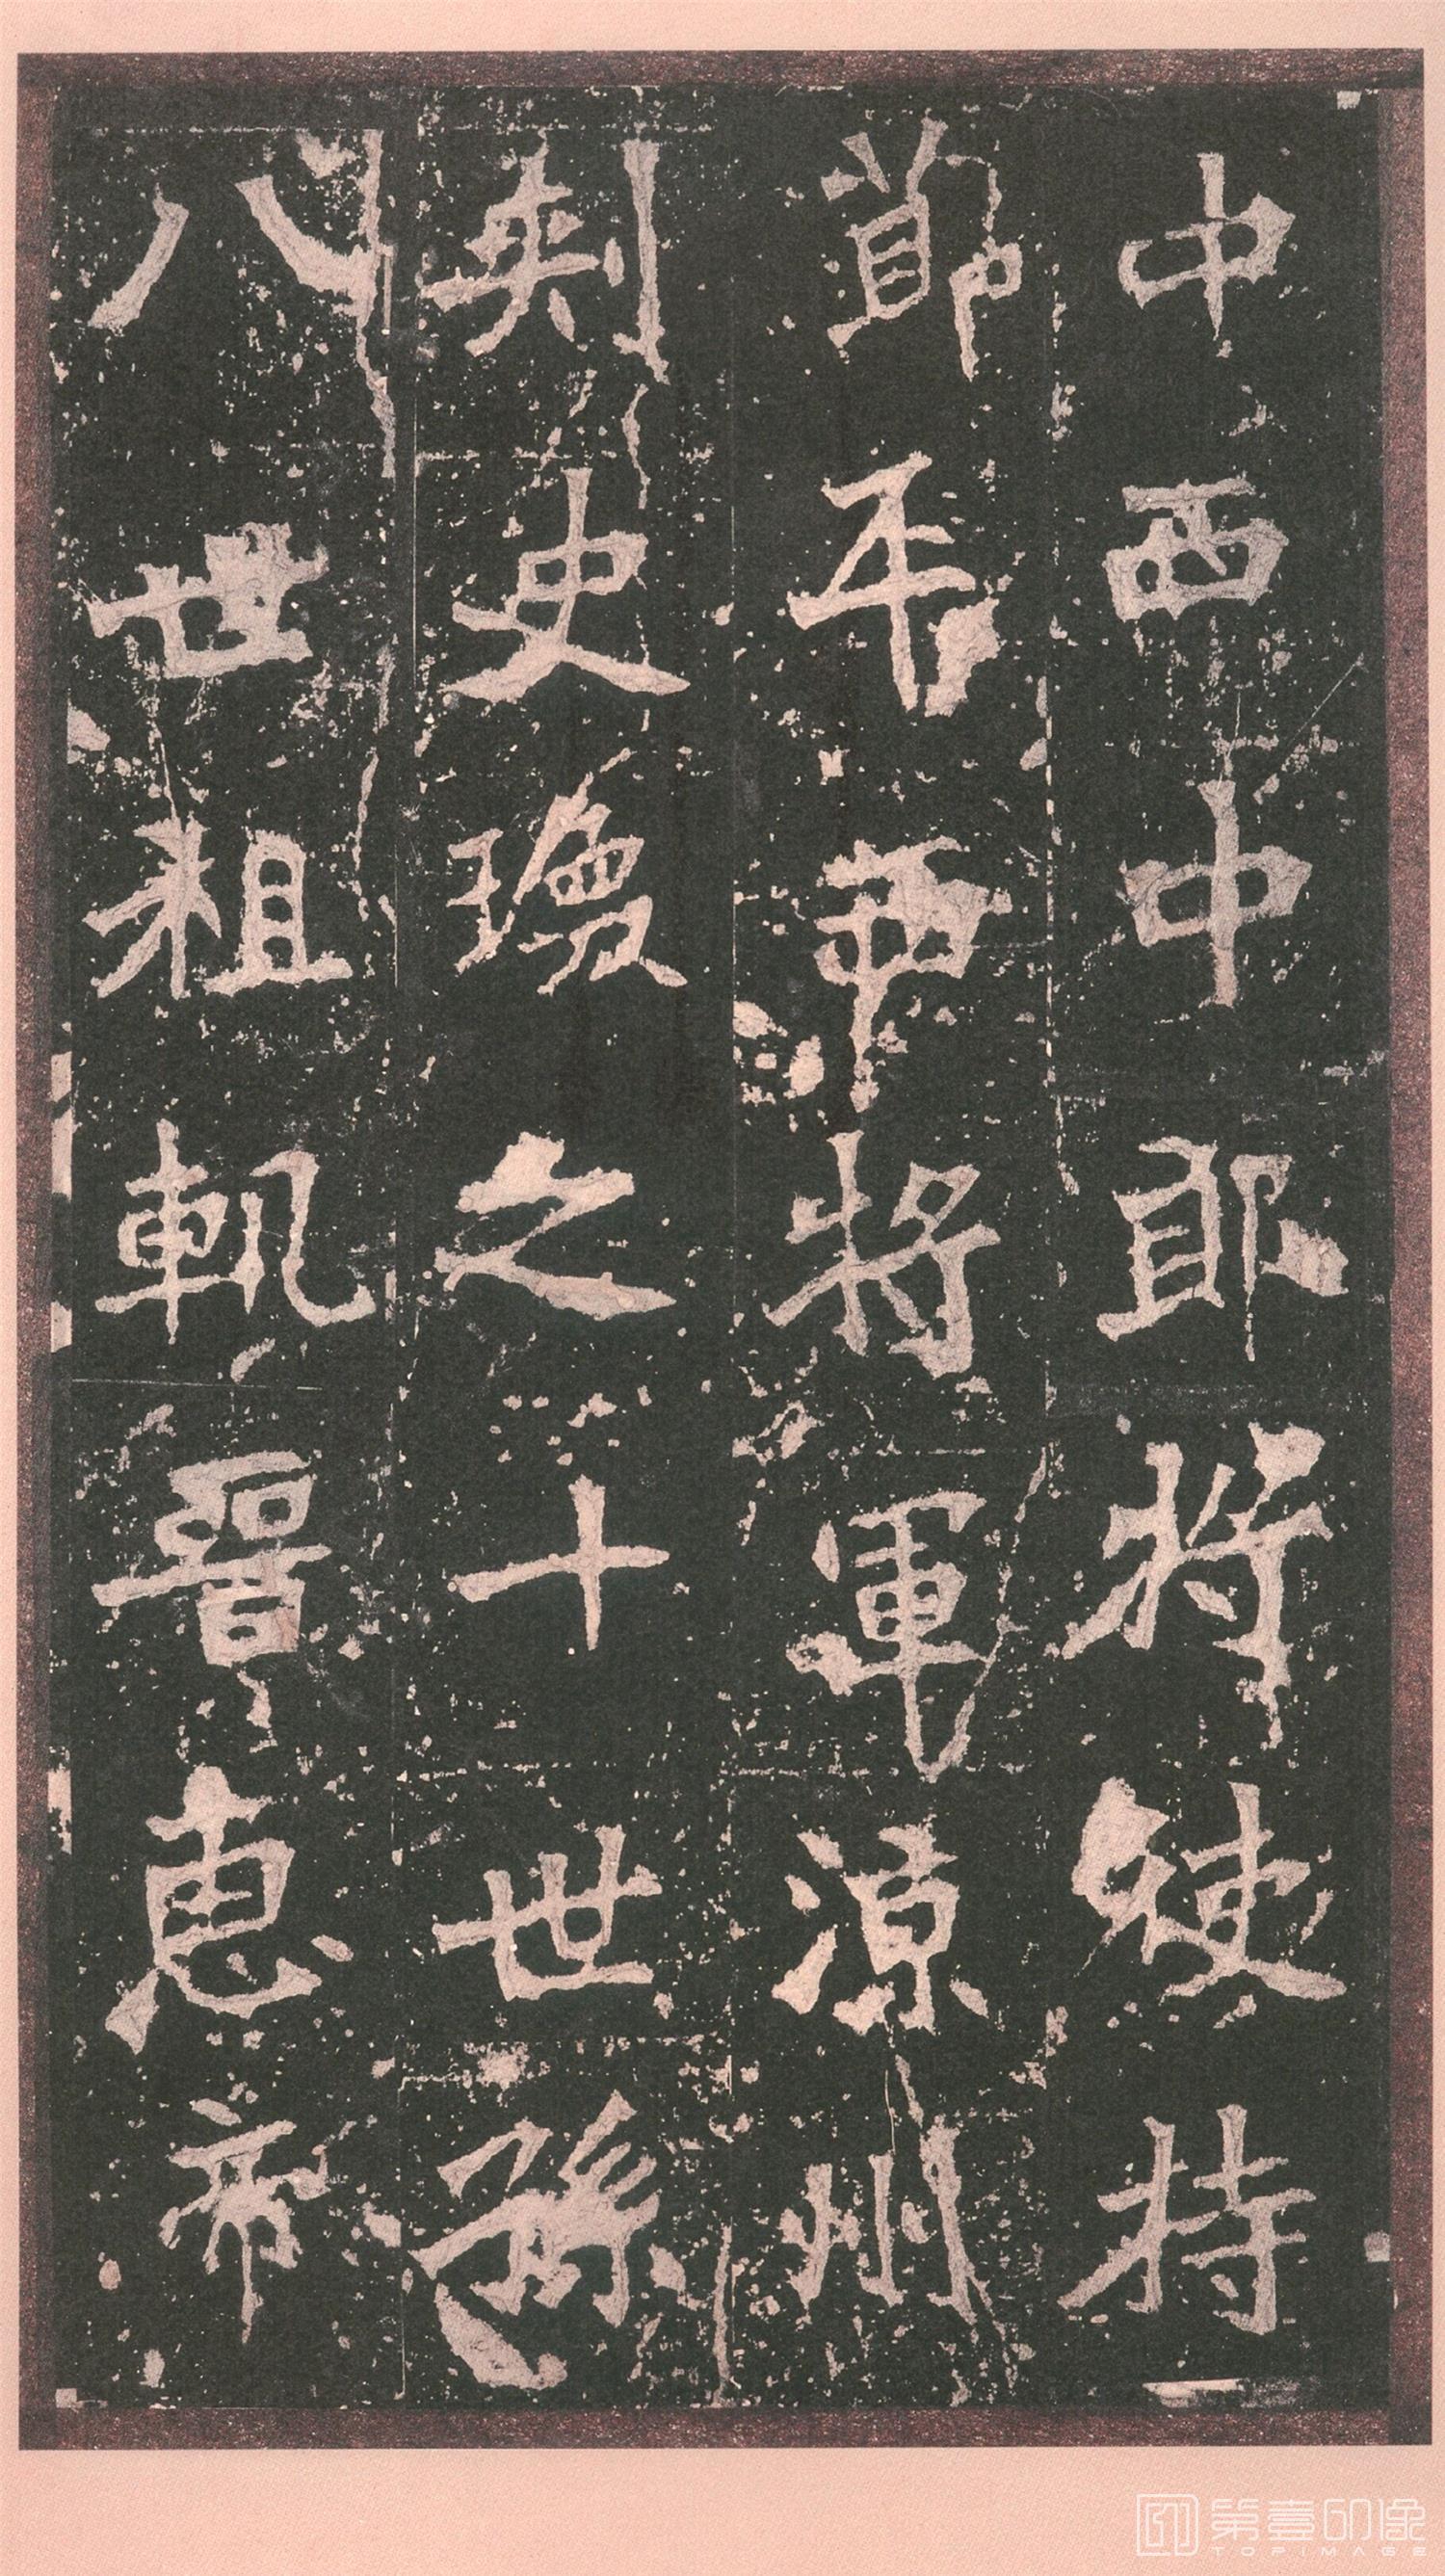 中西中郎將使持
節平西將軍涼州
刺史瓊之十世孫
八世祖軌晉惠帝
第壹印像
TOPIMAGE